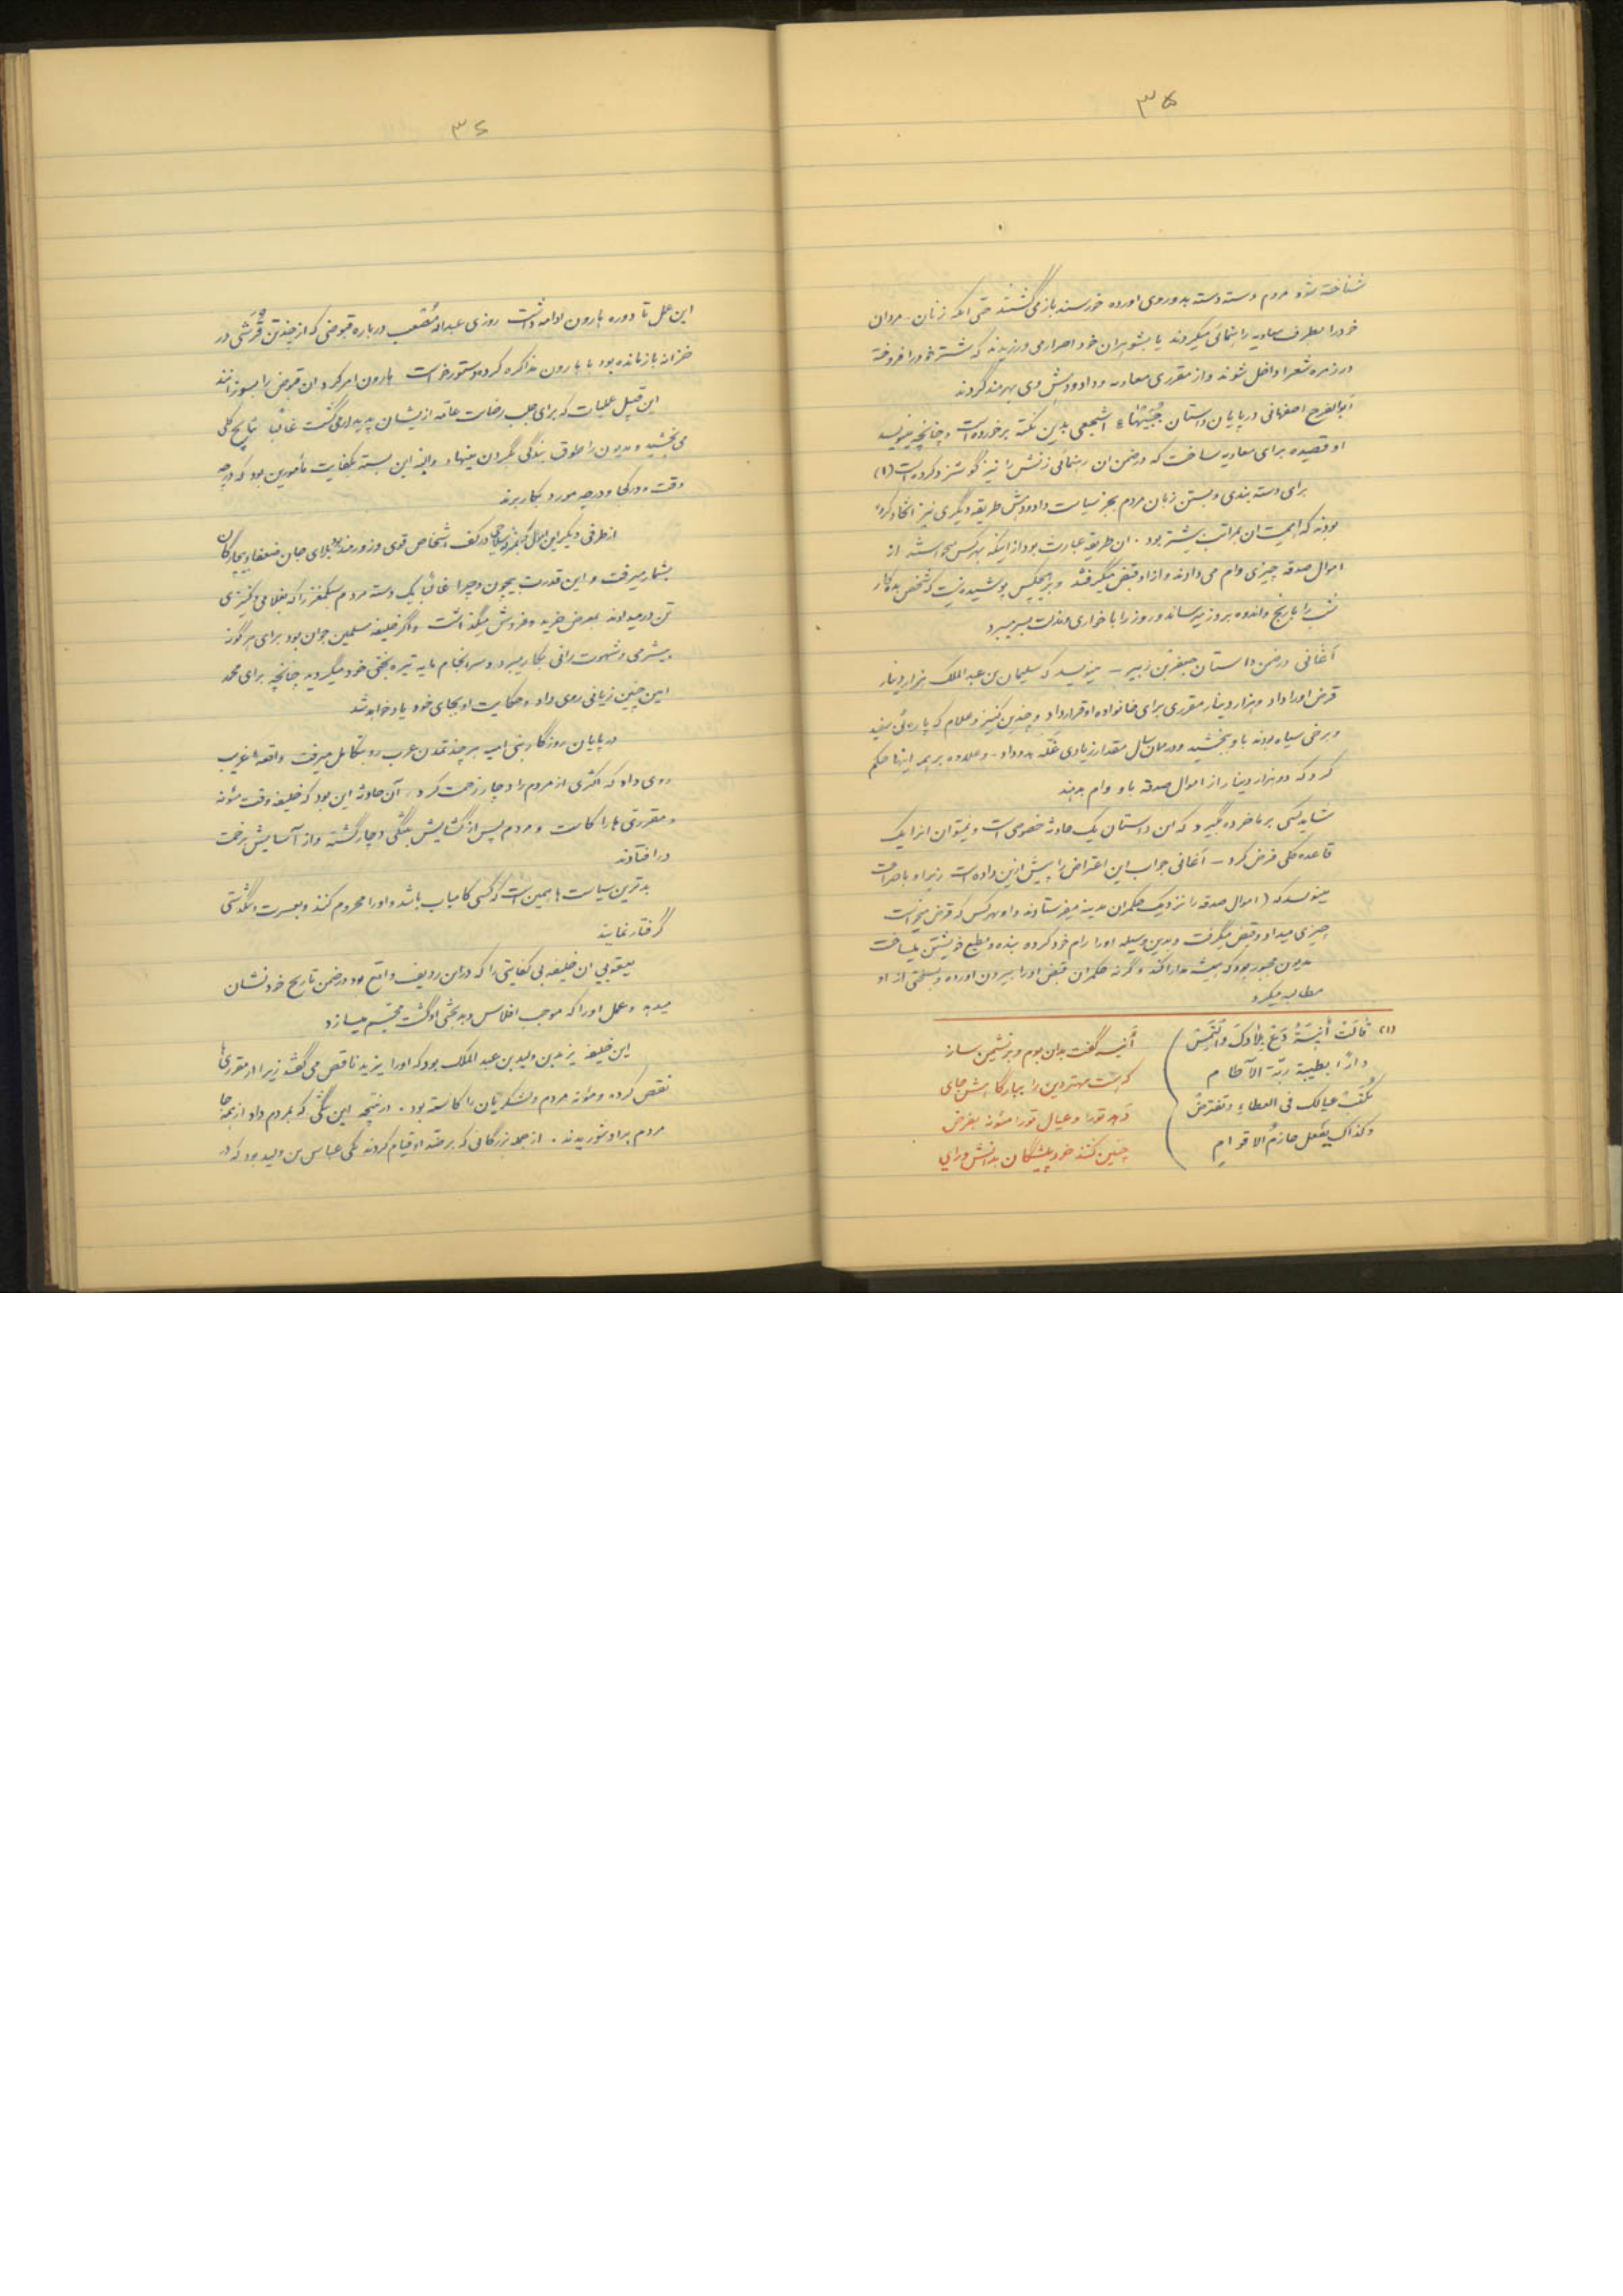 ۳۵
شناخته شود مردم دسته دسته بدو روی آورده خورسند باز می گشتند حتی اینکه زنان - مردان
خود را بطرف معاویه راهنمائی میکردند یا بشوهران خود اصرار می ورزیدند که شتر خود را فروخته
در زمره شعرا داخل شوند و از مقرری معاویه و داد و دهش وی بهره مند گردند
ابوالفرج اصفهانی در پایان داستان جبیهاء اشجعی بدین نکته برخورده است و چنانچه مینویسد
او قصیده برای معاویه ساخت که در ضمن آن رهنمائی زنش را نیز گوشزد کرده است (۱)
برای دسته بندی و بستن زبان مردم بجز سیاست داد و دهش طریقه دیگری نیز اتخاذ کرده
بودند که اهمیت آن بمراتب بیشتر بود . آن طریقه عبارت بود از اینکه بهر کس میخواستند از
اموال صدقه چیزی وام می دادند و از او قبض میگرفتند و بر هیچکس پوشیده نیست که شخص بدهکار
شب را با رنج و اندوه بروز میرساند و روز را با خواری و مذلت بسر میبرد
آغانی در ضمن داستان جعفر بن زبیر - مینویسد که سلیمان بن عبدالملک هزار دینار
قرض او را داد و هزار دینار مقرری برای خانواده او قرار داد و چندین کنیز و غلام که پاره ئی سفید
و برخی سیاه بودند باو بخشید و در همان سال مقدار زیادی غله بدو داد - و علاوه بر همه اینها حکم
کرد که دو هزار دینار از اموال صدقه باو وام بدهند
شاید کسی بر ما خرده بگیرد که این داستان یک حادثه خصوصی است و نمیتوان آنرا یک
قاعده کلی فرض کرد - آغانی جواب این اعتراض را پیش ازین داده است زیرا او با صراحت
مینویسد که ( اموال صدقه را نزدیک حکمران مدینه میفرستادند و او بهر کس که قرض میخواست
چیزی میداد و قبض میگرفت و بدین وسیله او را رام خود کرده بنده و مطیع خویشتن میساخت
مدیون مجبور بود که همیشه مدارا کند و گرنه حکمران قبض او را بیرون آورده و بسختی از او
مطالبه میکرد
(۱) قالَتْ أنیسَةُ دَعْ بِلادَکَ وَالْتَمِسْ
داراً بطیبة ربّة الآطام
تُکتَبْ عیالک فی العطاءِ وتفترضْ
وکذاک یفعل حازمُ الاقوامِ
أنیسه گفت بدان بوم و بر نشیمن ساز
چنین کنند خردپیشگان بدانش و رای
۳۶
این عمل تا دوره هارون ادامه داشت روزی عبدالله مصعب درباره قبوضی که از چندتن قرشی در
خزانه باز مانده بود با هارون مذاکره کرده و دستور خواست هارون امر کرد آن قبوض را بسوزانند
این قبیل عملیات که برای جلب رضایت عامه ازیشان پدیدار می گشت غالباً نتایج کلی
می بخشید و مدیون را طوق بندگی بگردن مینهاد والبته این بسته بکفایت مأمورین بود که در چه
وقت و در کجا و در چه مورد بکار برند
از طرفی دیگر این اموال در کف اشخاص قوی و زورمند بلای جان ضعفا و بیچارگان
بشمار میرفت و این قدرت بیچون و چرا غالباً یک دسته مردم سبکمغز را که بغلامی و کنیزی
تن در میدادند بمعرض خرید و فروش میگذاشت و اگر خلیفه مسلمین جوان بود برای هر گونه
بیشرمی و شهوت رانی بکار میبرد و سرانجام مایه تیره بختی خود میگردید چنانچه برای محمد
امین چنین زیانی روی داد و حکایت او بجای خود یاد خواهد شد
در پایان روزگار بنی امیه هر چند تمدن عرب رو بتکامل میرفت واقعه غریب
روی داد که اکثری از مردم را دچار زحمت کرد . آن حادثه این بود که خلیفه وقت مئونه
و مقرری ها را کاست و مردم پس از گشایش بتنگی دچار گشته و از آسایش بزحمت
در افتادند
بدترین سیاست ها همین است که کسی کامیاب باشد و او را محروم کنند و بعسرت و تنگدستی
گرفتار نمایند
یعقوبی آن خلیفه بی کفایتی را که در این ردیف واقع بود در ضمن تاریخ خود نشان
میدهد و عمل او را که موجب افلاس و بدبختی او گشت مجسم میسازد
این خلیفه یزید بن ولید بن عبد الملک بود که او را یزید ناقص می گفتند زیرا از مقرری ها
نقص کرده و مئونه مردم و لشکریان را کاسته بود . در نتیجه این تنگی که بمردم داد از همه جا
مردم بر او شوریدند . از جمله بزرگانی که بر ضد او قیام کردند یکی عباس بن ولید بود که در